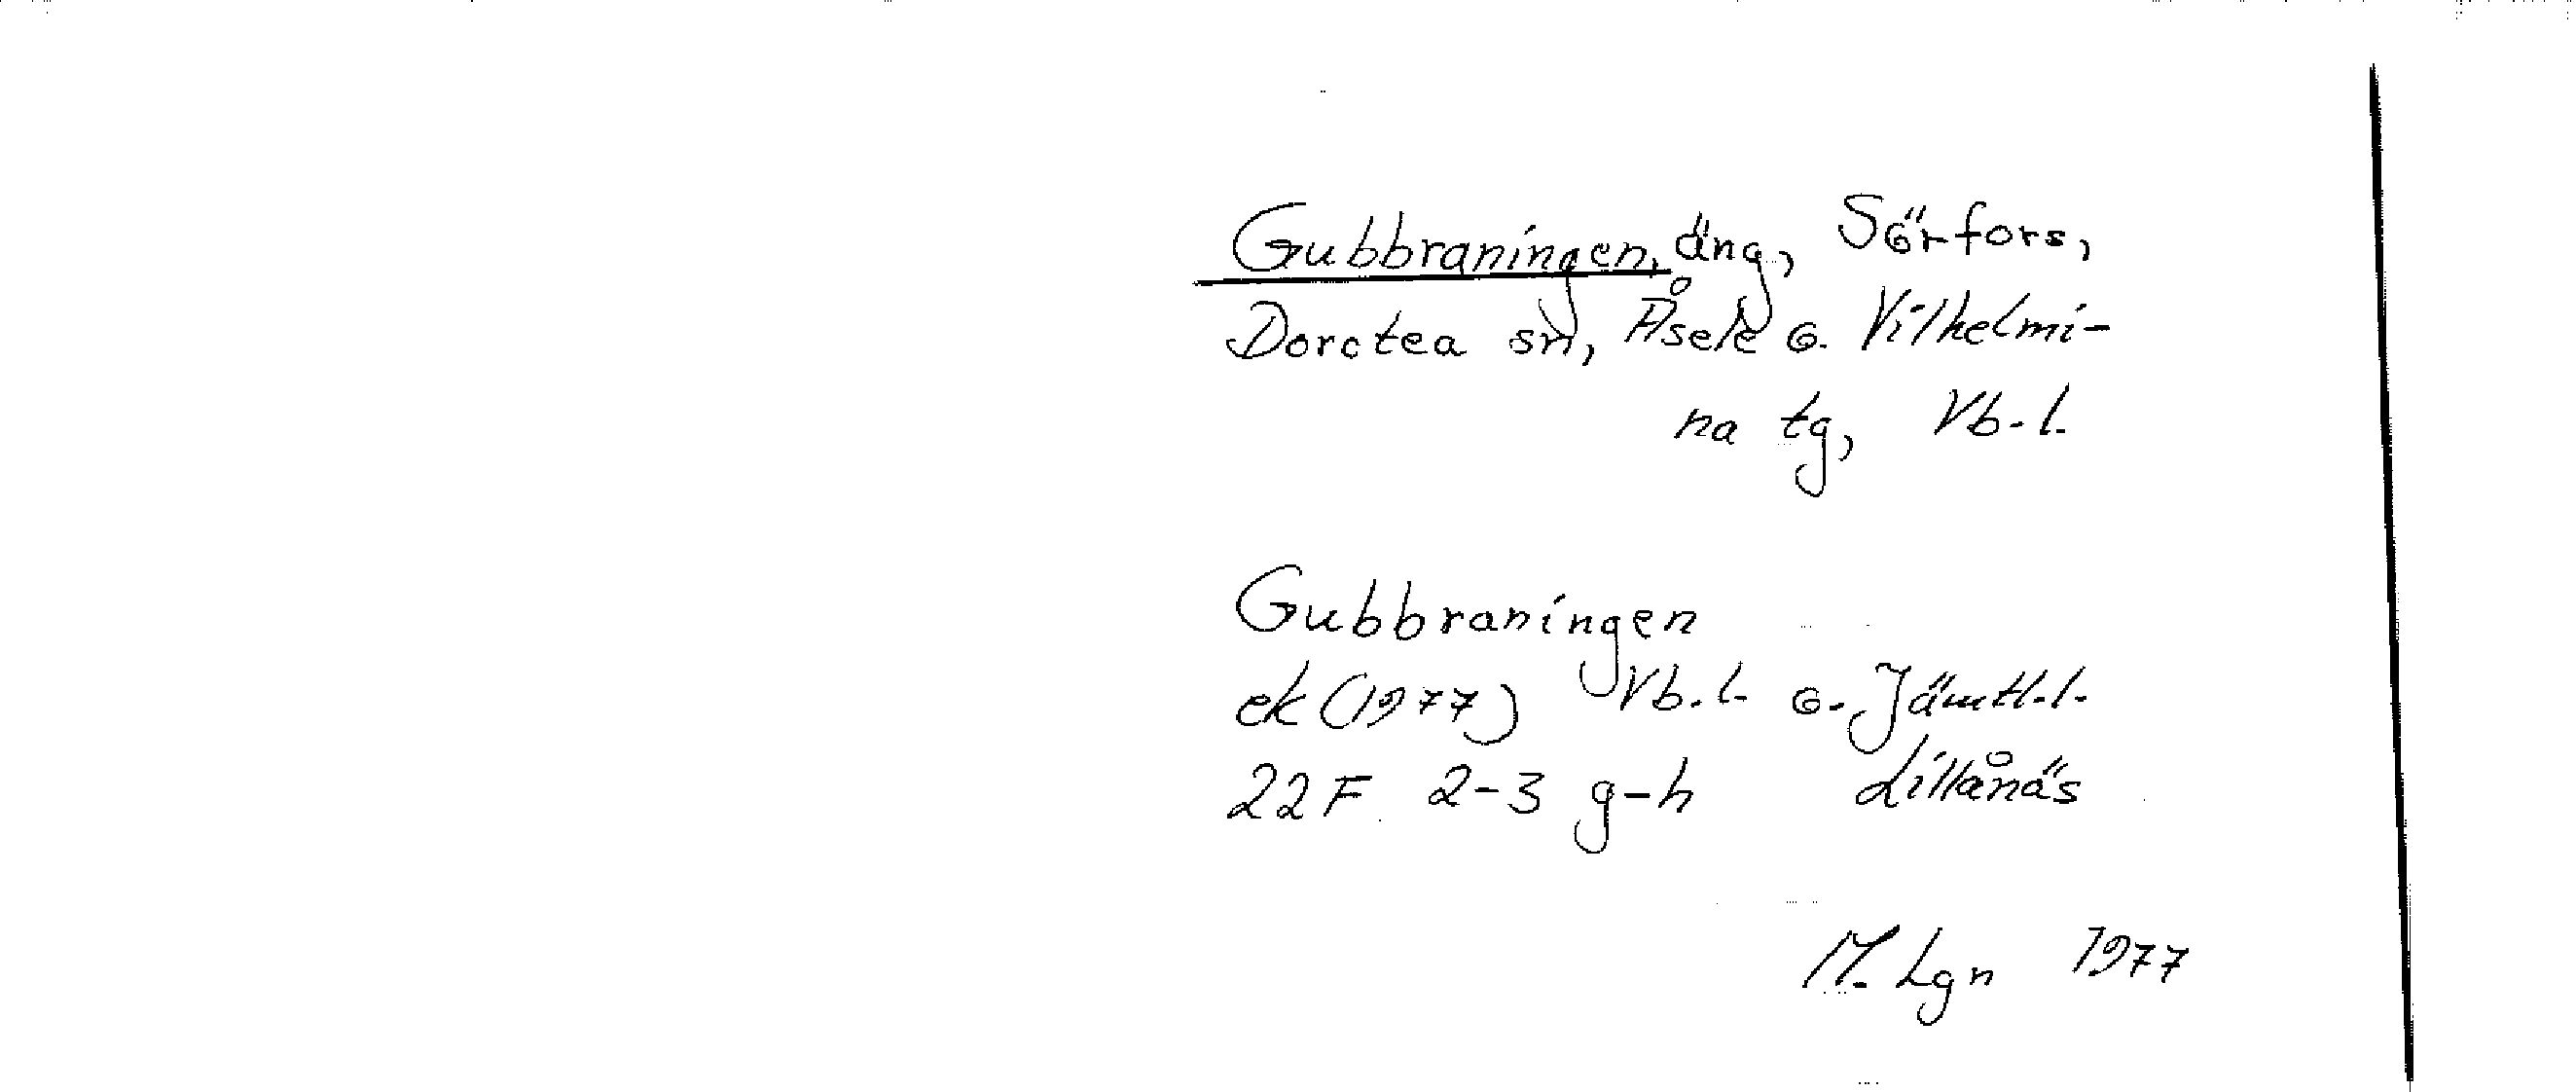 Gubbraningen, äng, Sörfors,
Dorotea sn, Åsele o. Vilhelmi-
na tg, Vb.l.
Gubbraningen
ek (1977) Vb.l. o. Jämtl.l.
22F 2-3 g-h Lillånäs
M. Lgn 1977